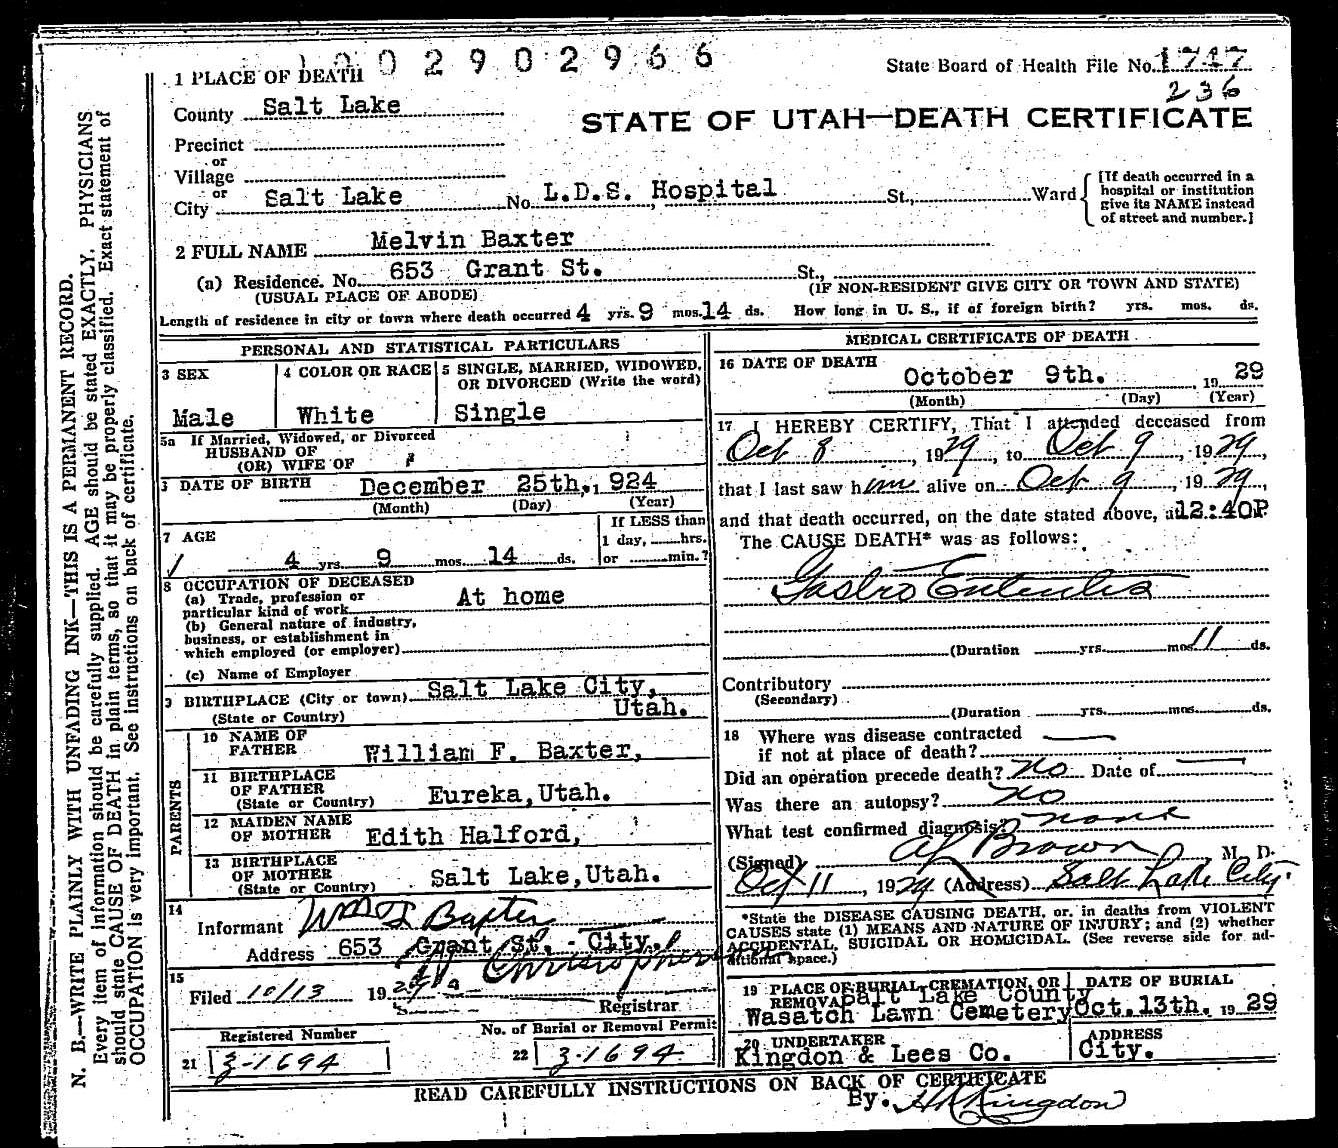 002902966
State Board of Health File No. 1747
236
STATE OF UTAH—DEATH CERTIFICATE
1 PLACE OF DEATH
County Salt Lake
Precinct
or
Village
or
City Salt Lake No. L.D.S. Hospital St., Ward
[If death occurred in a
hospital or institution
give its NAME instead
of street and number.]
2 FULL NAME Melvin Baxter
(a) Residence. No. 653 Grant St. St.,
(USUAL PLACE OF ABODE) (IF NON-RESIDENT GIVE CITY OR TOWN AND STATE)
Length of residence in city or town where death occurred 4 yrs. 9 mos. 14 ds. How long in U. S., if of foreign birth? yrs. mos. ds.
PERSONAL AND STATISTICAL PARTICULARS
3 SEX
Male
4 COLOR OR RACE
White
5 SINGLE, MARRIED, WIDOWED,
OR DIVORCED (Write the word)
Single
5a If Married, Widowed, or Divorced
HUSBAND OF
(OR) WIFE OF
DATE OF BIRTH December 25th, 1924
(Month) (Day) (Year)
7 AGE
4 yrs. 9 mos. 14 ds.
If LESS than
1 day, hrs.
or min.?
8 OCCUPATION OF DECEASED
(a) Trade, profession or
particular kind of work At home
(b) General nature of industry,
business, or establishment in
which employed (or employer)
(c) Name of Employer
9 BIRTHPLACE (City or town) Salt Lake City,
(State or Country) Utah.
PARENTS
10 NAME OF
FATHER William F. Baxter,
11 BIRTHPLACE
OF FATHER
(State or Country) Eureka, Utah.
12 MAIDEN NAME
OF MOTHER Edith Halford,
13 BIRTHPLACE
OF MOTHER
(State or Country) Salt Lake, Utah.
14
Informant Wm F Baxter
Address 653 Grant St. - City.
15
Filed 10/13 1929
Registrar
Registered Number
21 3-1694
No. of Burial or Removal Permit
22 3-1694
MEDICAL CERTIFICATE OF DEATH
16 DATE OF DEATH
October 9th. , 1929
(Month) (Day) (Year)
17 I HEREBY CERTIFY, That I attended deceased from
Oct 8 , 1929, to Oct 9, 1929,
that I last saw him alive on Oct 9, 1929,
and that death occurred, on the date stated above, at 12:40P
The CAUSE DEATH* was as follows:
Gastro Enteritis
(Duration yrs. mos. 11 ds.
Contributory
(Secondary)
(Duration yrs. mos. ds.
18 Where was disease contracted
if not at place of death?
Did an operation precede death? no Date of
Was there an autopsy? no
What test confirmed diagnosis? none
(Signed) Brown M. D.
Oct 11, 1929 (Address) Salt Lake City.
*State the DISEASE CAUSING DEATH, or, in deaths from VIOLENT
CAUSES state (1) MEANS AND NATURE OF INJURY; and (2) whether
ACCIDENTAL, SUICIDAL OR HOMICIDAL. (See reverse side for ad-
ditional space.)
19 PLACE OF BURIAL, CREMATION, OR
REMOVAL Salt Lake County
Wasatch Lawn Cemetery
DATE OF BURIAL
Oct. 13th. 1929
20 UNDERTAKER
Kingdon & Lees Co.
ADDRESS
City.
READ CAREFULLY INSTRUCTIONS ON BACK OF CERTIFICATE
By. Kingdon
N. B.—WRITE PLAINLY WITH UNFADING INK—THIS IS A PERMANENT RECORD.
Every item of information should be carefully supplied. AGE should be stated EXACTLY. PHYSICIANS
should state CAUSE OF DEATH in plain terms, so that it may be properly classified. Exact statement of
OCCUPATION is very important. See instructions on back of certificate.